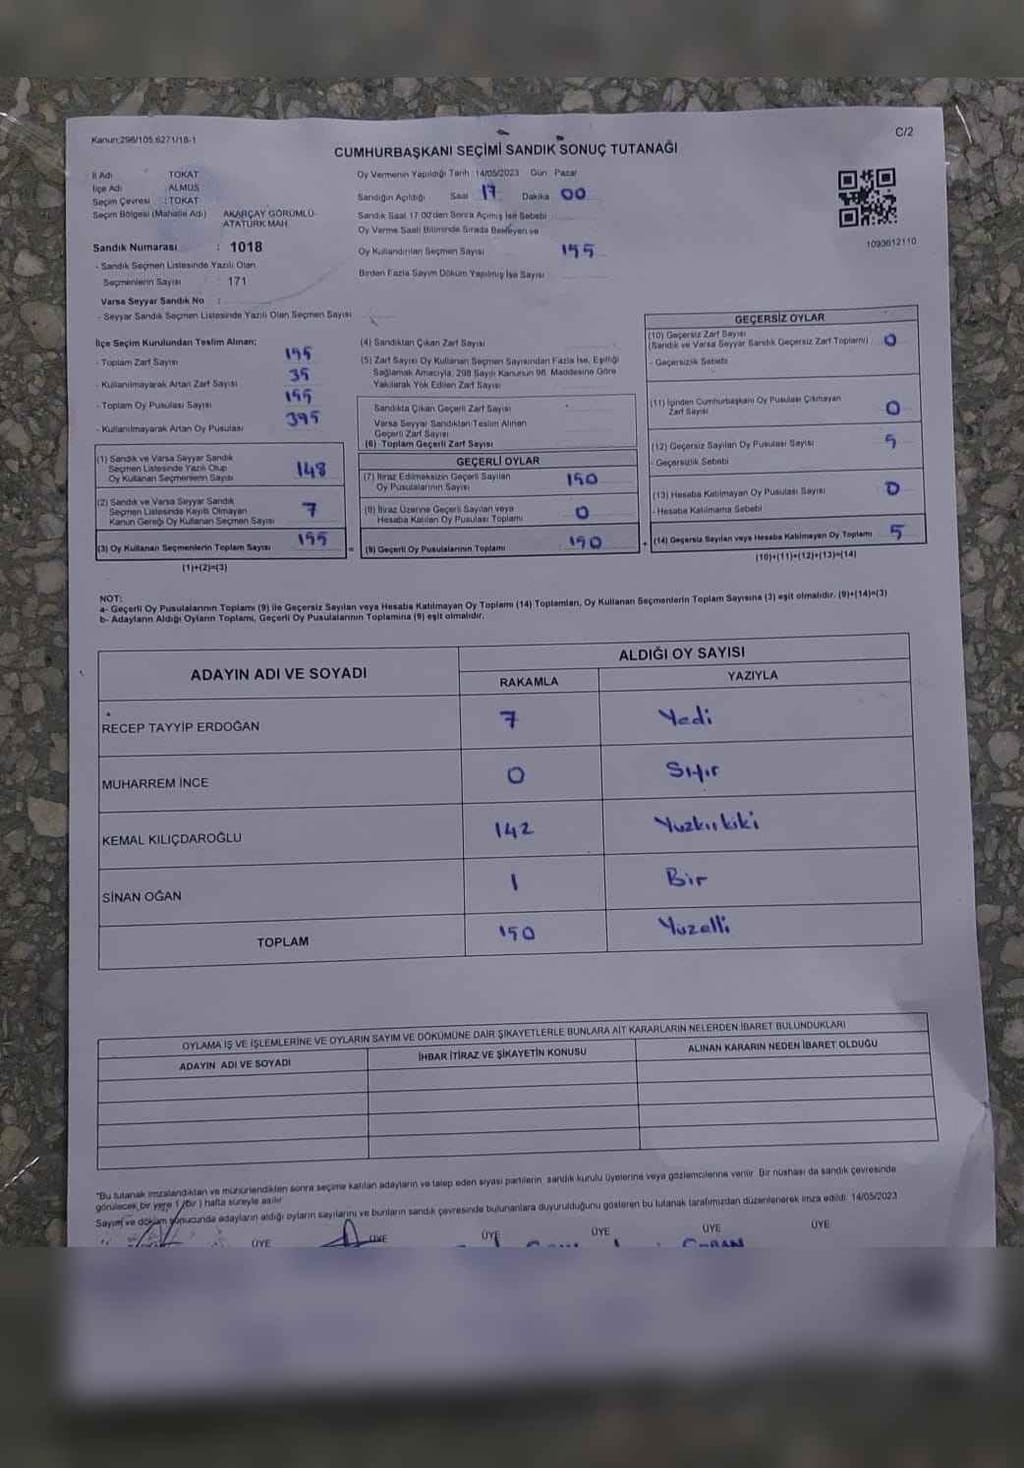 Kanun:298/105,6271/18-1
C/2
CUMHURBAŞKANI SEÇİMİ SANDIK SONUÇ TUTANAĞI
İl Adı TOKAT
İlçe Adı :ALMUS
Seçim Çevresi :TOKAT
Seçim Bölgesi (Mahalle Adı) AKARÇAY GÖRÜMLÜ-
ATATÜRK MAH.
Sandık Numarası : 1018
- Sandık Seçmen Listesinde Yazılı Olan
Seçmenlerin Sayısı 171
Varsa Seyyar Sandık No :
- Seyyar Sandık Seçmen Listesinde Yazılı Olan Seçmen Sayısı
Oy Vermenin Yapıldığı Tarih :14/05/2023 Gün: Pazar
Sandığın Açıldığı Saat 17 Dakika 00
Sandık Saat 17.00'den Sonra Açılmış İse Sebebi
Oy Verme Saati Bitiminde Sırada Bekleyen ve
Oy Kullandırılan Seçmen Sayısı 155
Birden Fazla Sayım Döküm Yapılmış İse Sayısı
1093612110
İlçe Seçim Kurulundan Teslim Alınan;
- Toplam Zarf Sayısı 195
- Kullanılmayarak Artan Zarf Sayısı 35
- Toplam Oy Pusulası Sayısı
- Kullanılmayarak Artan Oy Pusulası 395
(1) Sandık ve Varsa Seyyar Sandık
Seçmen Listesinde Yazılı Olup
Oy Kullanan Seçmenlerin Sayısı 148
(2) Sandık ve Varsa Seyyar Sandık
Seçmen Listesinde Kayıtlı Olmayan
Kanun Gereği Oy Kullanan Seçmen Sayısı 7
(3) Oy Kullanan Seçmenlerin Toplam Sayısı 155
(1)+(2)=(3)
(4) Sandıktan Çıkan Zarf Sayısı
(5) Zarf Sayısı Oy Kullanan Seçmen Sayısından Fazla İse, Eşitliği
Sağlamak Amacıyla, 298 Sayılı Kanunun 98. Maddesine Göre
Yakılarak Yok Edilen Zarf Sayısı
Sandıkta Çıkan Geçerli Zarf Sayısı
Varsa Seyyar Sandıktan Teslim Alınan
Geçerli Zarf Sayısı
(6) Toplam Geçerli Zarf Sayısı
GEÇERLİ OYLAR
(7) İtiraz Edilmeksizin Geçerli Sayılan
Oy Pusulalarının Sayısı 150
(8) İtiraz Üzerine Geçerli Sayılan veya
Hesaba Katılan Oy Pusulası Toplamı 0
= (9) Geçerli Oy Pusulalarının Toplamı 150
GEÇERSİZ OYLAR
(10) Geçersiz Zarf Sayısı
(Sandık ve Varsa Seyyar Sandık Geçersiz Zarf Toplamı) 0
- Geçersizlik Sebebi
(11) İçinden Cumhurbaşkanı Oy Pusulası Çıkmayan
Zarf Sayısı 0
(12) Geçersiz Sayılan Oy Pusulası Sayısı 5
- Geçersizlik Sebebi
(13) Hesaba Katılmayan Oy Pusulası Sayısı 0
- Hesaba Katılmama Sebebi
+ (14) Geçersiz Sayılan veya Hesaba Katılmayan Oy Toplamı 5
(10)+(11)+(12)+(13)=(14)
NOT:
a- Geçerli Oy Pusulalarının Toplamı (9) ile Geçersiz Sayılan veya Hesaba Katılmayan Oy Toplamı (14) Toplamları, Oy Kullanan Seçmenlerin Toplam Sayısına (3) eşit olmalıdır. (9)+(14)=(3)
b- Adayların Aldığı Oyların Toplamı, Geçerli Oy Pusulalarının Toplamına (9) eşit olmalıdır.
ADAYIN ADI VE SOYADI
ALDIĞI OY SAYISI
RAKAMLA YAZIYLA
RECEP TAYYİP ERDOĞAN 7 Yedi
MUHARREM İNCE 0 Sıfır
KEMAL KILIÇDAROĞLU 142 Yuzkırkiki
SİNAN OĞAN 1 Bir
TOPLAM 150 Yuzelli
OYLAMA İŞ VE İŞLEMLERİNE VE OYLARIN SAYIM VE DÖKÜMÜNE DAİR ŞİKAYETLERLE BUNLARA AİT KARARLARIN NELERDEN İBARET BULUNDUKLARI
ADAYIN ADI VE SOYADI İHBAR İTİRAZ VE ŞİKAYETİN KONUSU ALINAN KARARIN NEDEN İBARET OLDUĞU
"Bu tutanak imzalandıktan ve mühürlendikten sonra seçime katılan adayların ve talep eden siyasi partilerin, sandık kurulu üyelerine veya gözlemcilerine verilir. Bir nüshası da sandık çevresinde
görülecek bir yere 1 (bir) hafta süreyle asılır.
Sayım ve döküm sonucunda adayların aldığı oyların sayılarını ve bunların sandık çevresinde bulunanlara duyurulduğunu gösteren bu tutanak tarafımızdan düzenlenerek imza edildi. 14/05/2023
ÜYE ÜYE ÜYE ÜYE ÜYE ÜYE